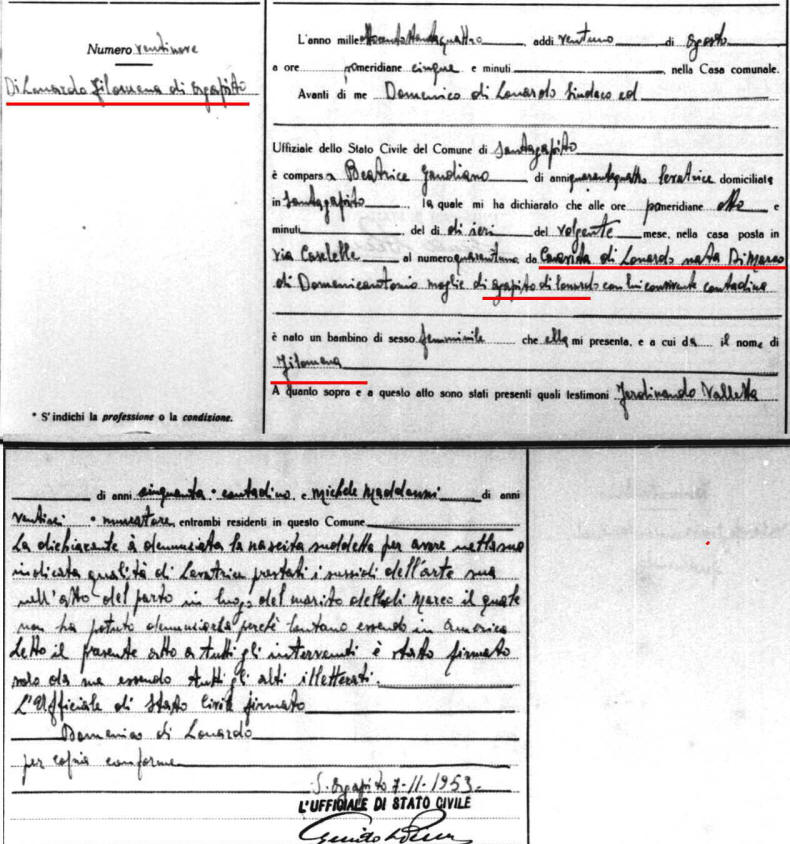 Numero ventinove
Di Lonardo Filomena di Agapito
* S'indichi la professione o la condizione.
L'anno mille ottocentottantaquattro, addì ventuno di Agosto
a ore pomeridiane cinque e minuti , nella Casa comunale.
Avanti di me Domenico di Lonardo Sindaco ed
Uffiziale dello Stato Civile del Comune di Santagapito
è comparsa Beatrice Gaudiano di anni quarantaquattro levatrice domiciliata
in Santagapito , la quale mi ha dichiarato che alle ore pomeridiane otto e
minuti , del dì di ieri del volgente mese, nella casa posta in
via Caselette al numero quarantuno da di Lonardo nata Di Marco
di Domenicantonio moglie di Agapito di Lonardo con lui convivente contadina
è nato un bambino di sesso femminile che ella mi presenta, e a cui dà il nome di
Filomena
A quanto sopra e a questo atto sono stati presenti quali testimoni Ferdinando Valletta
di anni cinquanta contadino, e Michele di anni
muratore, entrambi residenti in questo Comune
La dichiarante à denunciata la nascita suddetta per avere nella suo
indicata qualità di Levatrice prestati i sussidi dell'arte sua
nell'atto del parto in luogo del marito della di Marco il quale
non ha potuto denunciarla perchè lontano essendo in America
Letto il presente atto a tutti gli intervenuti è stato firmato
solo da me essendo tutti gli altri illetterati.
L'Ufficiale di Stato Civile firmato
Domenico di Lonardo
per copia conforme
S. Agapito 7-11-1953
L'UFFICIALE DI STATO CIVILE